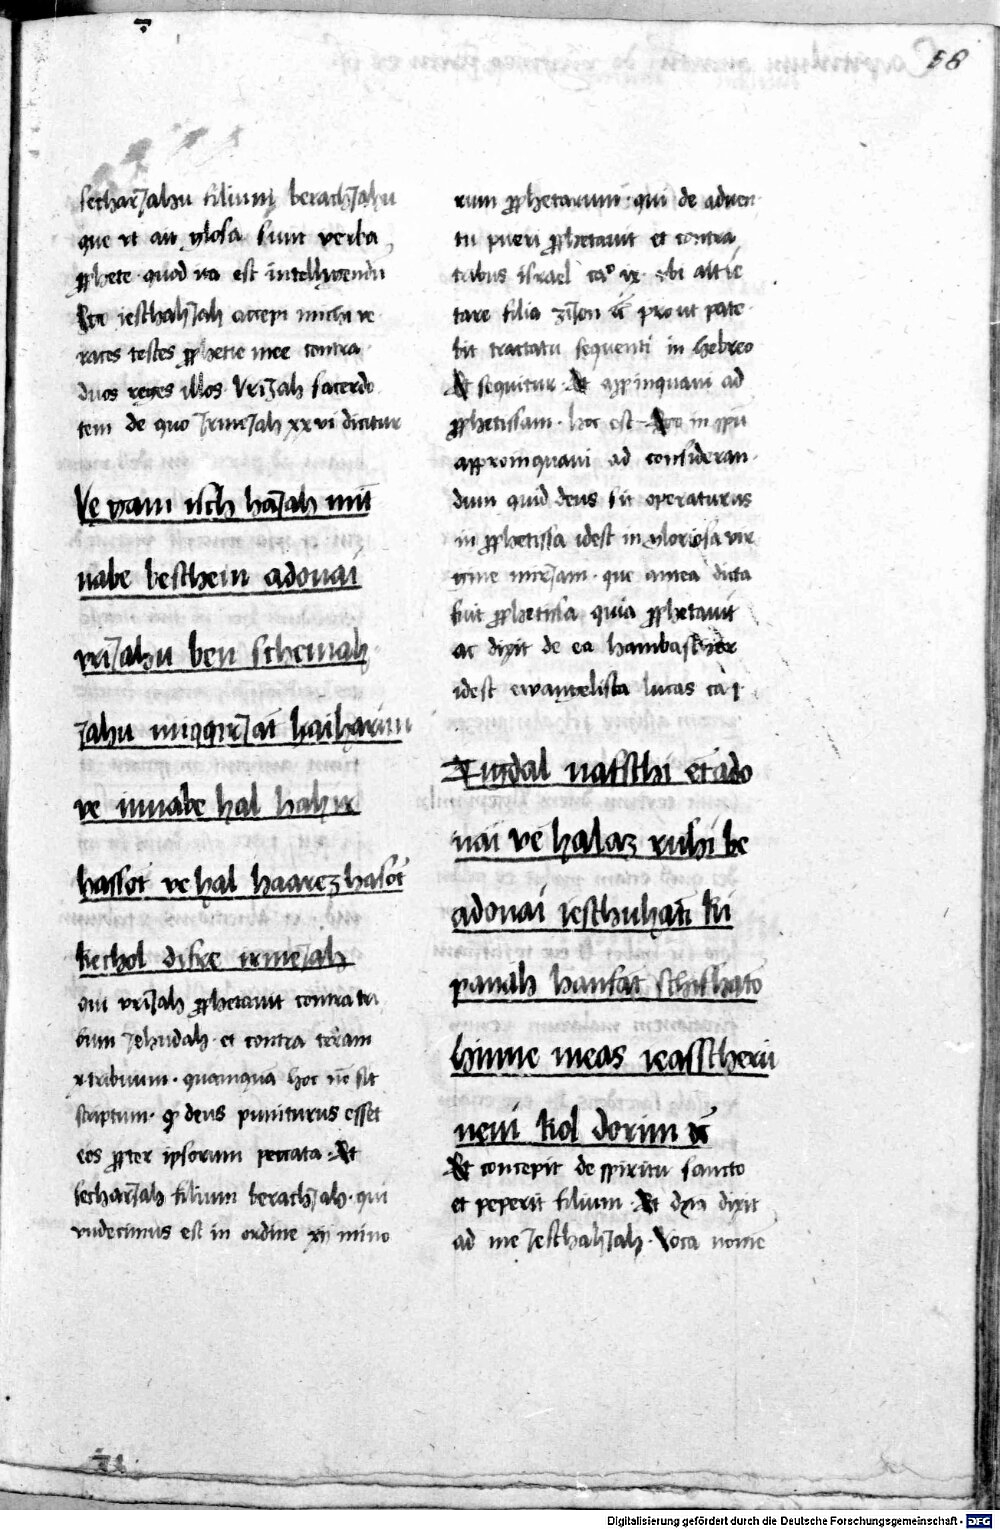 58
sechar̄Jahu filium berachJahu
que vt ait glosa sunt verba
ꝓphete · quod ita est intelligendū
Ego iesthahJah accepi michi ve
races testes ꝓphetie mee contra
duos reges illos VriJah sacerdo
tem de quo JrmeJah xxvi dicitur
Ve gam isch haJah mit
nabe besthem adonai
vriJahu ben schemah
Jahu miqqirJat haiharim
ve innabe hal hahir
hassot ve hal haarez hasot
kechol difre irmeJah
qui vriJah ꝓphetauit contra tri
bum Jehudah · et contra terram
x tribuum · quamquā hoc nō sit
scriptum · ꝙ deus puniturus esset
eos ꝓpter ipsorum peccata · Et
secharJah filium berachJah · qui
vndecimus est in ordine xij mino
rum ꝓphetarum · qui de aduen
tu pueri ꝓphetauit et contra
tribus israel ca° ix · vbi ait le
tare filia ziJon &c prout pate
bit tractatu sequenti in hebreo
Et sequitur · Et appinquaui ad
ꝓphetissam · hoc est ego in spū
appropinquaui ad consideran
dum quid deus sit operaturus
in ꝓphetissa idest in gloriosa vir
gine mirJam · que antea dicta
fuit ꝓphetissa quia ꝓphetauit
ac dixit de ea hambasscher
idest ewangelista lucas ca j
Tigdal nafsthi et ado
nai ve halaz ruhi be
adonai iesthuhati ki
panah hanfat schifhato
hinne meas ieasstheru
neni kol dorim &c
Et concepit de spiritu sancto
et peperit filium · Et dn̄s dixit
ad me JesthahJah · Voca nome
Digitalisierung gefördert durch die Deutsche Forschungsgemeinschaft - DFG